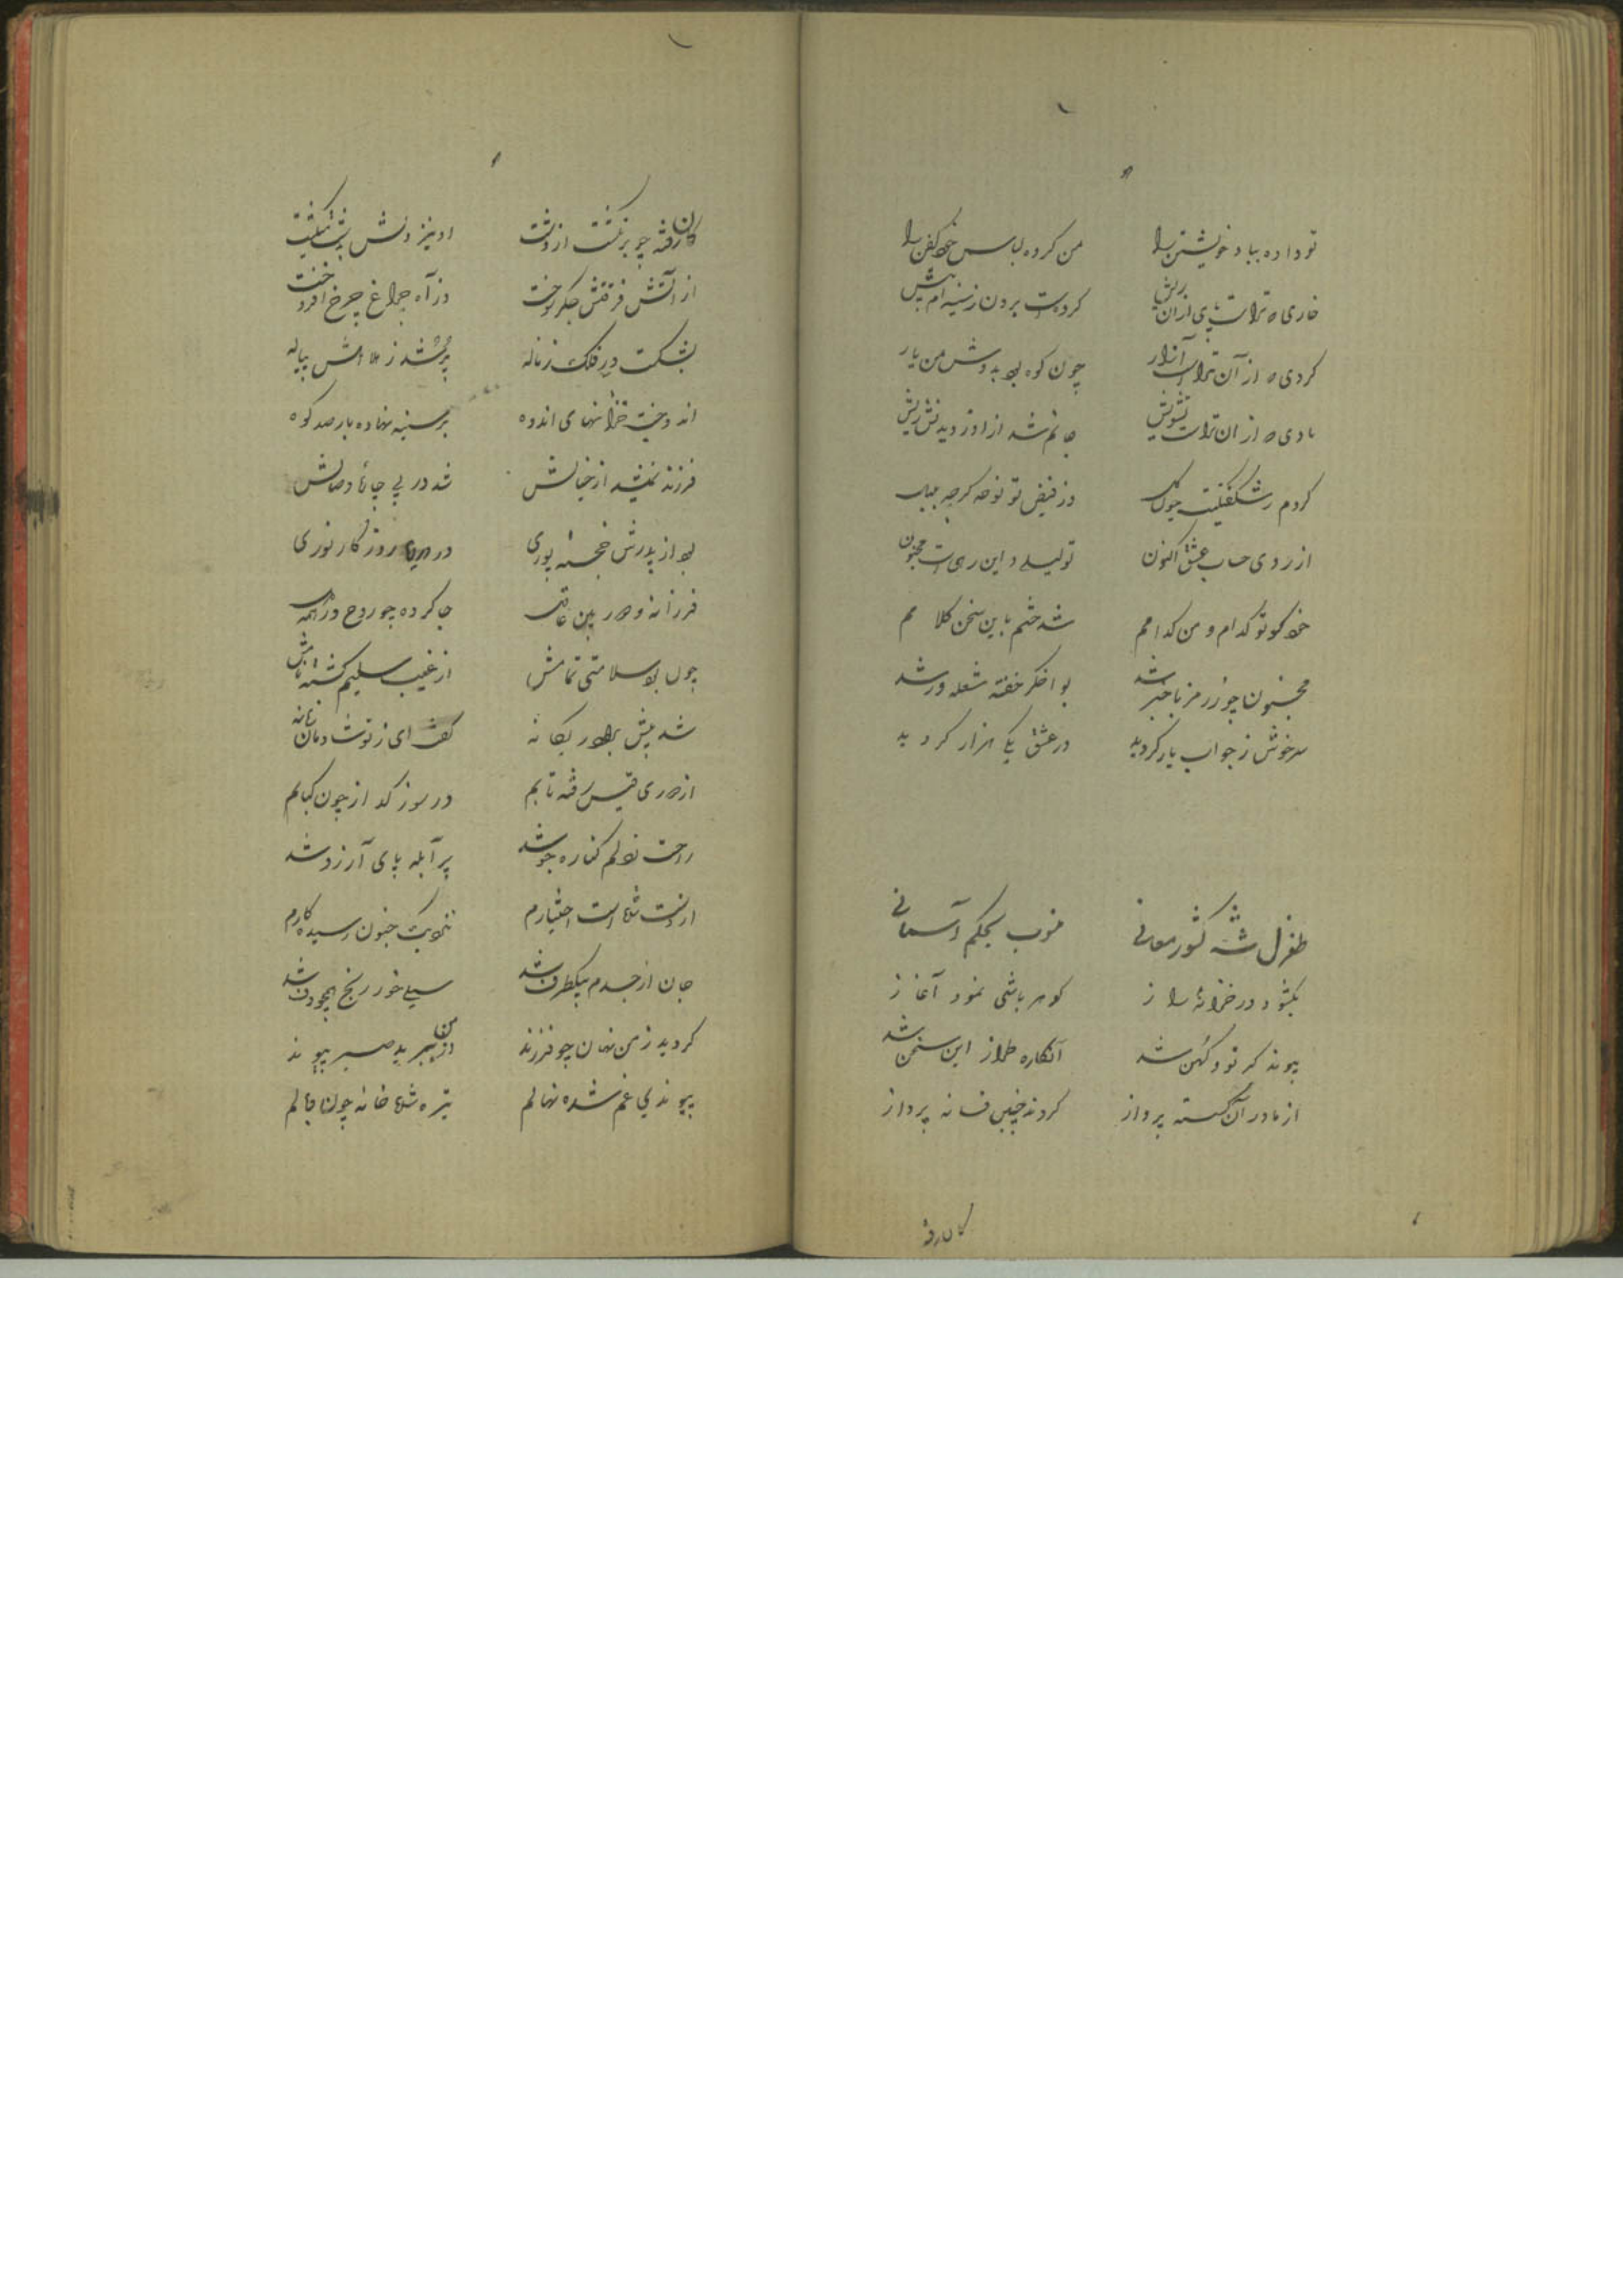 تو داده بباد خویشتن را من کرده لباس خود کفن را
خاری که تراست پای ازان ریش کردست برون ز سینه ام نیش
کردی که از آن تراست آزار چون کوه بود بدوش من بار
بادی که ازان تراست تشویش جانم شد از او
کردم ز شکفتنت چون گل وز فیض تو نوحه کر چو بلبل
از روی حساب عشق اکنون تو لیلی و این رهی است مجنون
خود کو تو کدام و من کدامم شد ختم باین سخن کلامم
مجنون چو ز رمز باخبر شد بود اخکر خفته شعله ور شد
سرخوش ز جواب یار کردید در عشق یکی هزار کردید
طغرل شه کشور معانی منسوب بحکم آسمانی
بکشود در خزانهٔ راز کوهر باشی نمود آغاز
پیوند کر نو و کهن شد آنکاره طراز این سخن شد
از مادر آن کسسته پرواز کردند چنین فسانه پرداز
کان رفته
کان رفته چو برنکشت از دشت او نیز دلش
از آتش فرقتش جکر سوخت وز آه چراغ چرخ افروخت
بشکست در فلک ز ناله پر شد ز پیاله
اندوخت خزانهای اندوه بر سینه نهاده بار صد کوه
فرزند از خیالش شد در پی وصالش
بود از پدرش خجسته پوری در روزکار نوری
فرزانه و دوربین عاقل جا کرده چو روح در همه دل
چون بود سلامتی تمامش از غیب سلیم کشته نامش
شد پیش برادر یکانه کفت ای ز تو شادمان زمانه
از دوری قیس رفته تابم در سوز کداز چون کبابم
راحت ز دلم کناره جو شد پر آبله پای آرزو شد
از دست شده است اختیارم نزدیک جنون رسیده کارم
جان از جسدم بیکطرف شد سیلی خور رنج همچو دف شد
کردید ز من نهان چو فرزند از من ببرید صبر پیوند
پیوندی غم شده نهالم تیره شده خانه چون